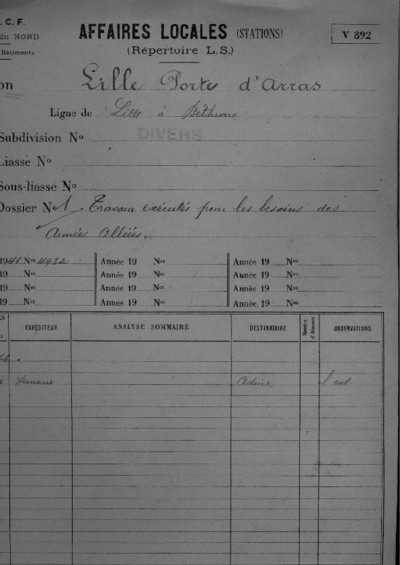 .C.F.
du NORD
Bâtiments
AFFAIRES LOCALES (STATIONS)
(Répertoire L.S.)
V 392
on Lille Porte d'Arras
Ligne de Lille à Béthune
Subdivision No DIVERS
Liasse No
Sous-liasse No
Dossier No 1. Travaux exécutés pour les besoins des
Armées Alliées.
Année 19 Nos Année 19 Nos
19 Nos Année 19 Nos Année 19 Nos
19 Nos Année 19 Nos Année 19 Nos
19 Nos Année 19 Nos Année 19 Nos
EXPÉDITEUR ANALYSE SOMMAIRE DESTINATAIRE OBSERVATIONS